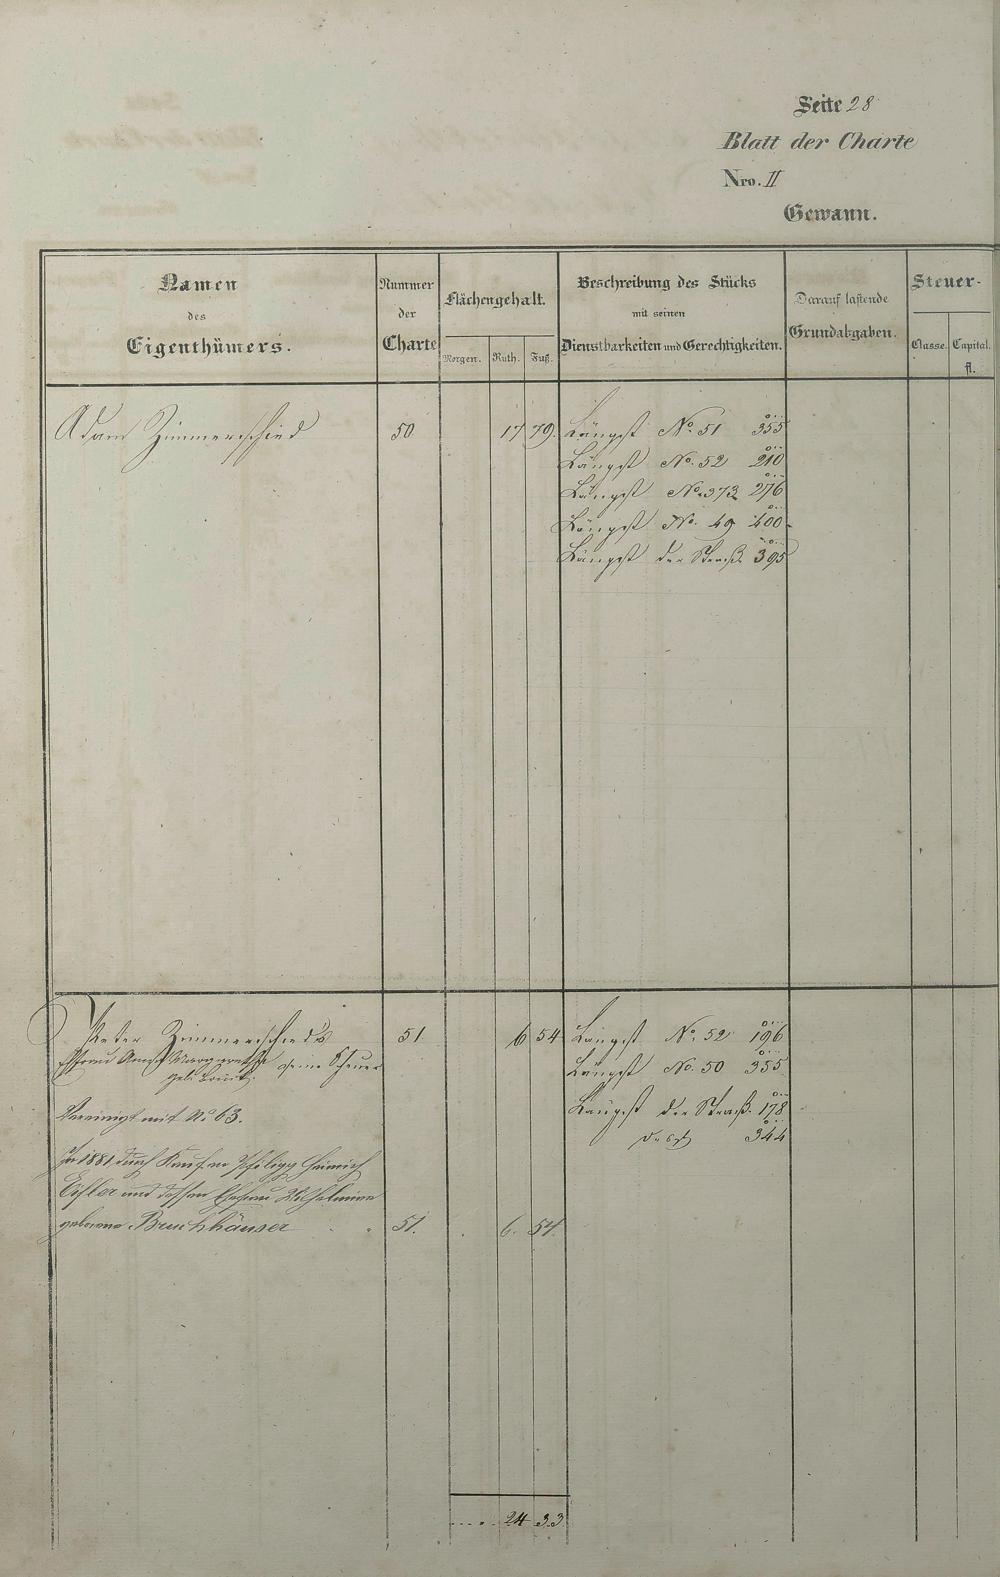 Seite 28
Blatt der Charte
Nro. II
Gewann.
Namen
des
Eigenthümers.
Nummer
der
Charte
Flächengehalt.
Morgen. Ruth. Fuß.
Beschreibung des Stücks
mit seinen
Dienstbarkeiten und Gerechtigkeiten.
Darauf lastende
Grundabgaben.
Steuer-
Classe. Capital.
fl.
Adam Zimmerschied 50 17 79. Längst No. 51 355
Längst No. 52 210
Längst No. 373 276
Längst No. 49 400
Längst der Straß. 395
Peter Zimmerschied's 51 6 54 Längst No. 52 196
Ehfrau Anna Margarethe seine Scheuer
geb.
Längst No. 50 355
Längst der Straß. 178
344
Vereinigt mit No 63.
In 1881 durch Kauf an Philipp Heinrich
und dessen Ehefrau Wilhelmine
geborene Bruchhäuser 51. 6. 54.
24 33